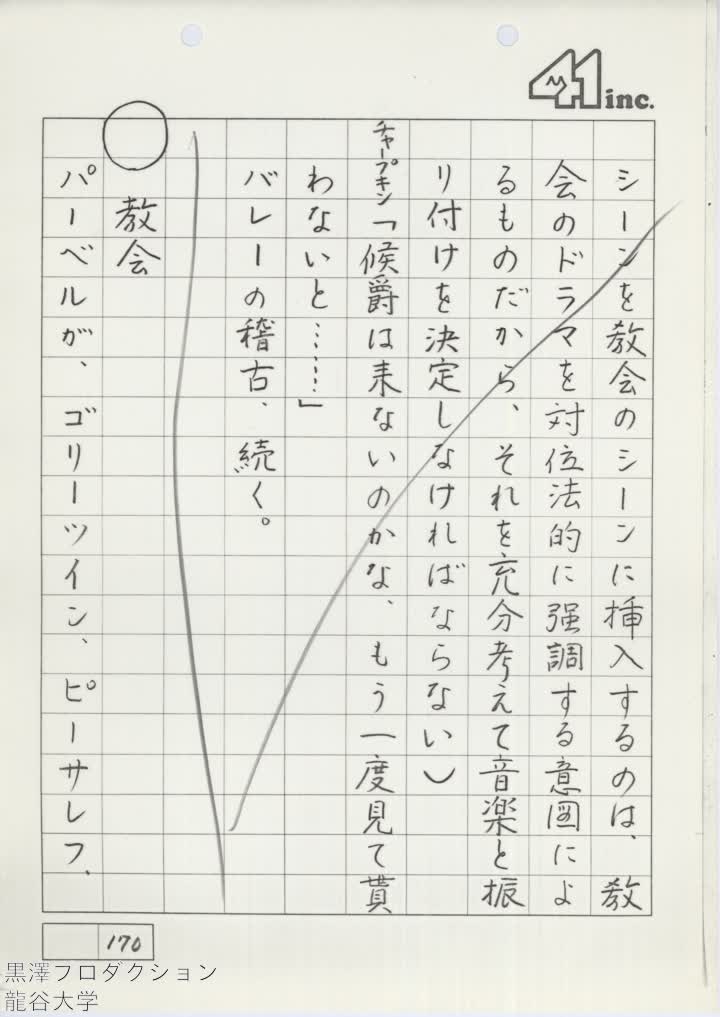 41 inc.
シーンを教会のシーンに挿入するのは、教
会のドラマを対位法的に強調する意図によ
るものだから、それを充分考えて音楽と振
り付けを決定しなければならない）
チャープキン「候爵は来ないのかな、もう一度見て貰
わないと……」
バレーの稽古、続く。
○　教会
パーベルが、ゴリーツイン、ピーサレフ、
170
黒澤プロダクション
龍谷大学